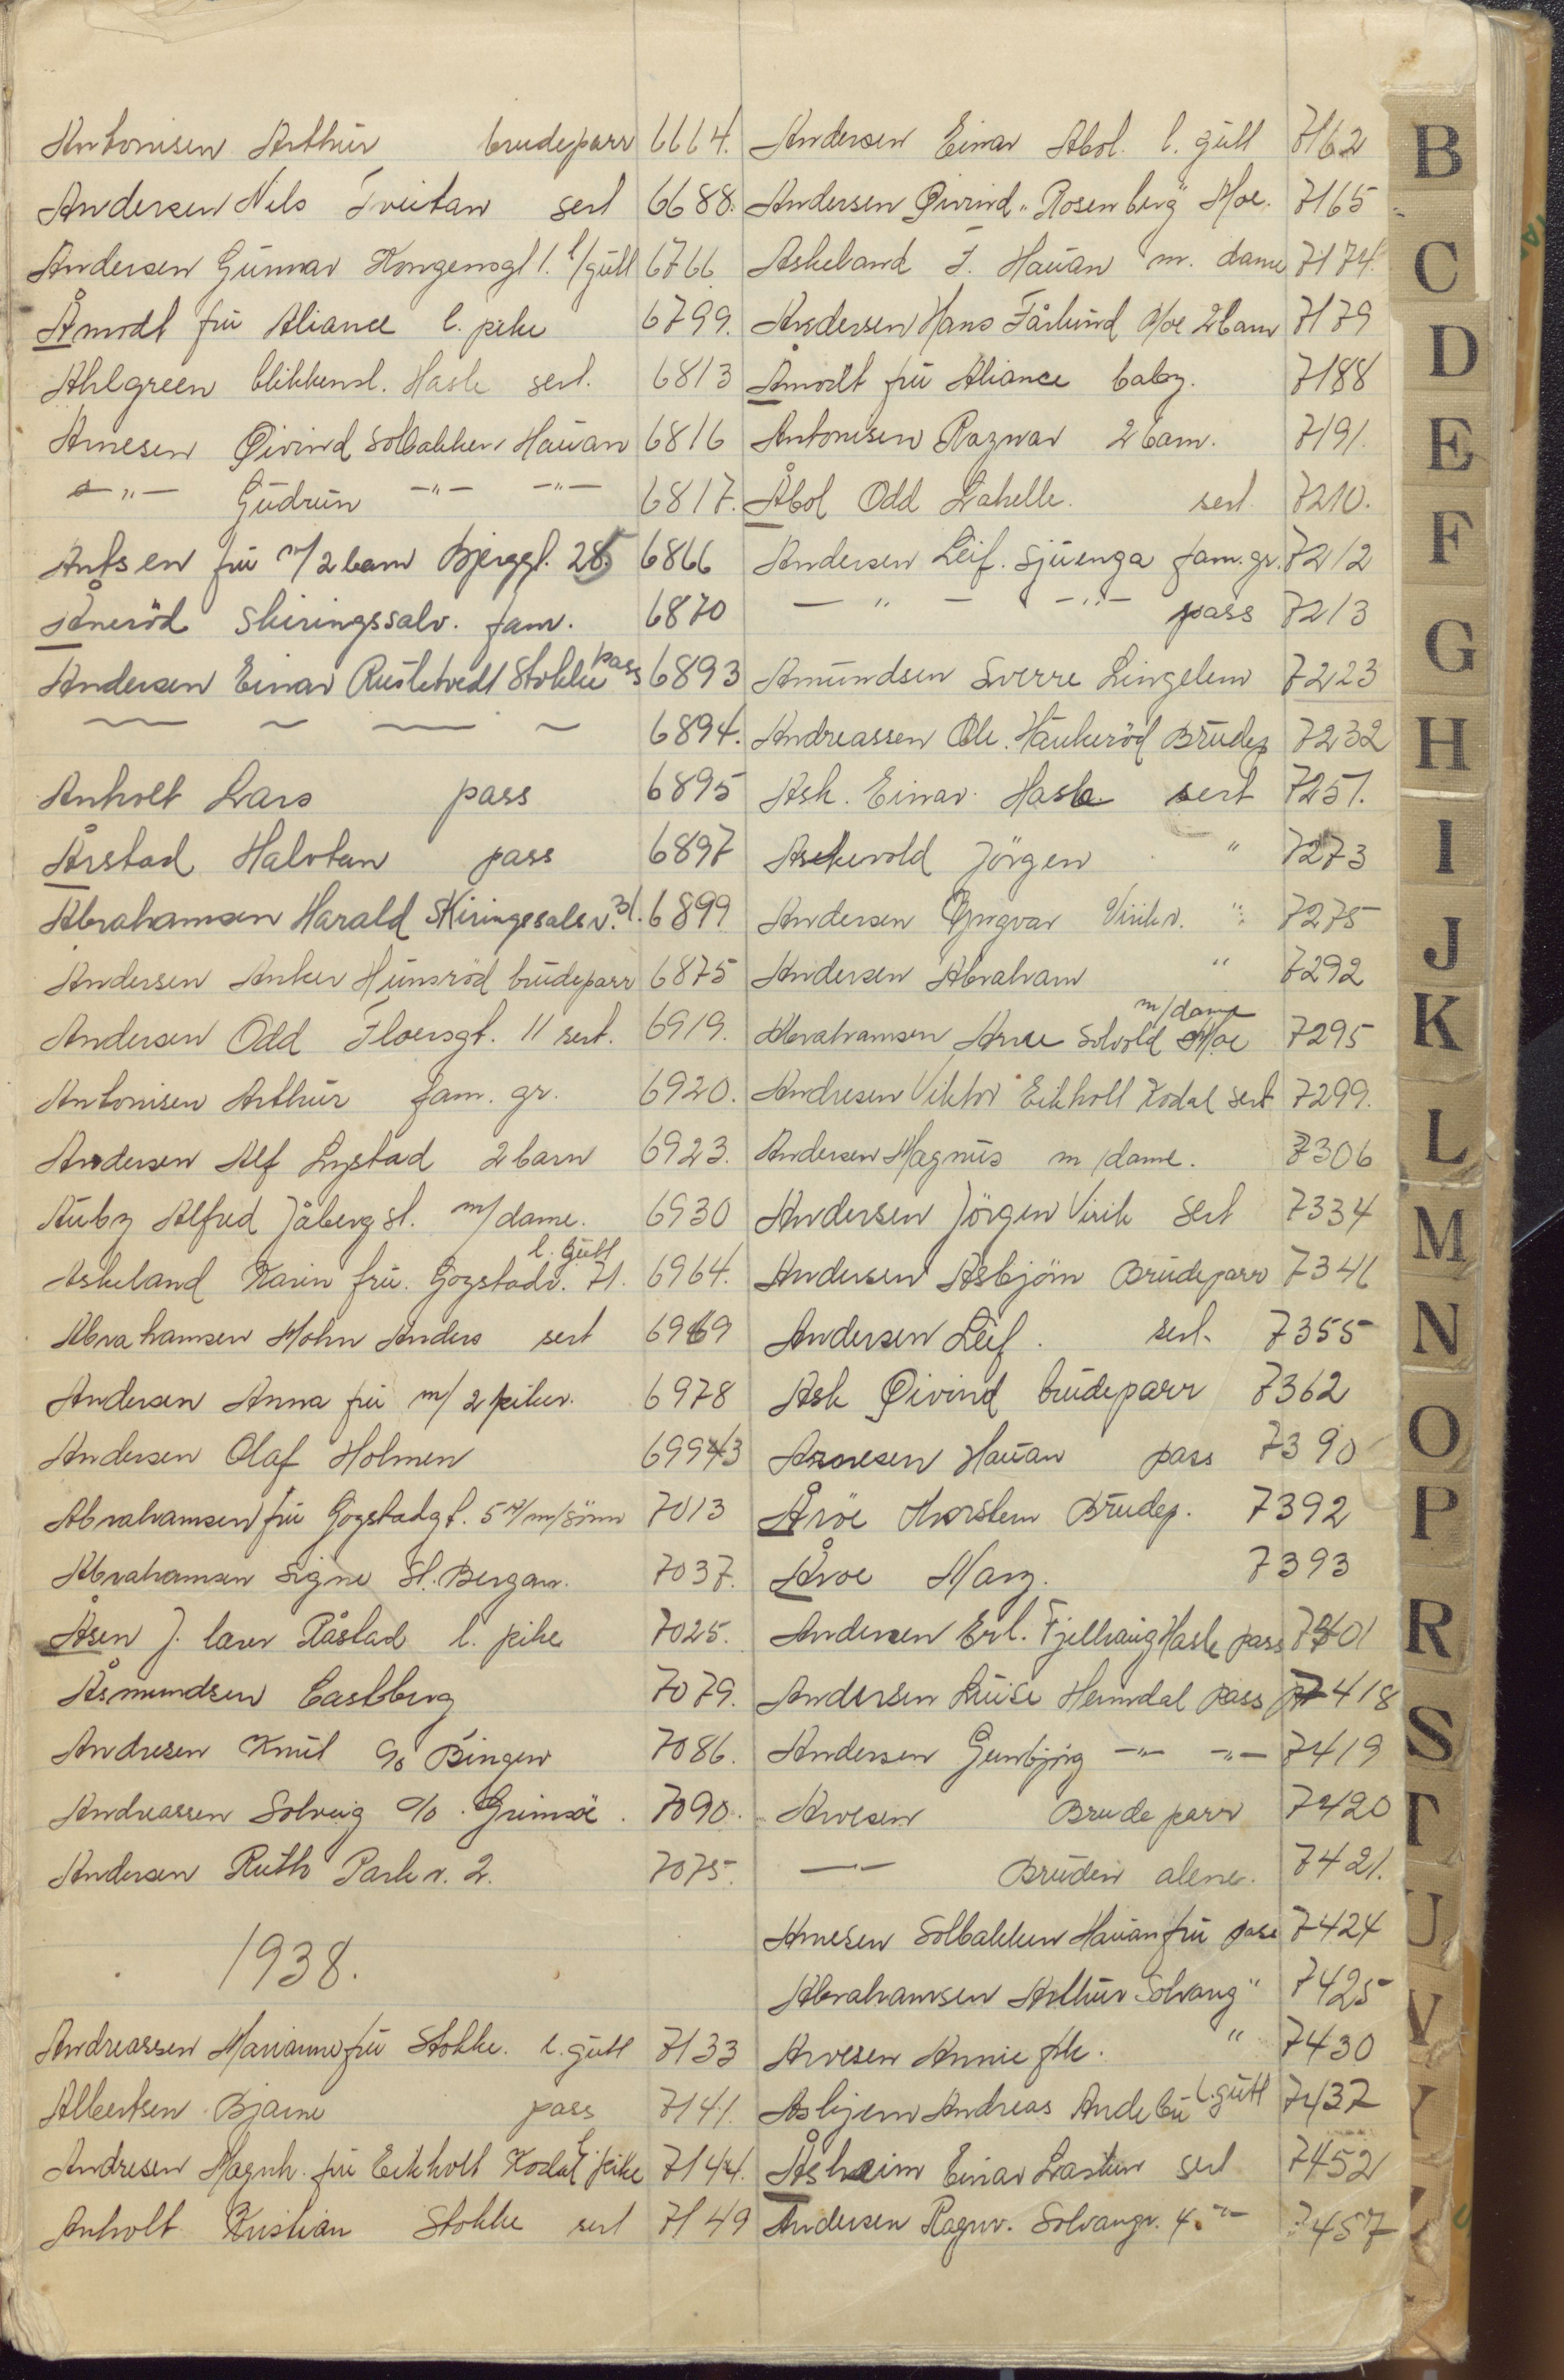 Antonisen Arthur brudeparr 6664.
Andersen Nils Tveitan sert 6688.
Andersen Gunnar Kongensgt 1. l/gutt 6766
Åmodt fru Aliance l. pike 6799.
Ahlgreen blikkensl. Hasle sert. 6813
Arnesen Øivind Solbakken Hauan 6816
-"- Gudrun -"- -"- 6817.
fru m/2 barn Bjerggt. 28 6866
Åneröd Skiringssalv. fam. 6870
Andersen Einar Stokke pass 6893
6894.
Anholt Lars pass 6895
Årstad Halvtan pass 6897
Abrahamsen Harald Skiringssalsv. 31. 6899
Andersen Anker Hunsröd brudeparr 6875
Andersen Odd Floersgt. 11 sert. 6919.
Antonisen Arthur fam. gr. 6920.
Andersen Alf Lystad 2 barn 6923.
Auby Alfred Jåberg st. m/dame. 6930
Askeland Karin fru. Gogstadv. 71. l. gutt 6964.
Abrahamsen Hohn Anders sert 6969
Andersen Anna fru m/ 2 piker. 6978
Andersen Olaf Holmen 69943
Abrahamsen fru Gogstadgt. 5 m/sönn 7013
Abrahamsen Signe St. Bergan. 7037.
Åsen J. lærer Råstad l. pike 7025.
Åsmundsen Castberg 7079.
Andresen Knut c/o Bingen 7086.
Andreassen Solveig c/o Grimsöe 7090.
Andersen Ruth Parkv. 2. 7075.
1938.
Andreassen Marianne fru Stokke. l. gutt 7133
Albertsen Bjarne pass 7141.
Andresen Magnh. fru Eikholt Kodal l. pike 7144.
Anholt Kristian Stokke sert 7149
Andersen Einar Abol. l. gutt 7162
Andersen Øivind "Rosenberg" Moe. 7165
Askeland F. Hauan m. dame 7174.
Andersen Hans Fårlund Moe 2 barn 7179
Åmodt fru Aliance baby. 7188
Antonisen Ragnar 2 barn. 7191.
Åbol Odd Lahelle. sert 7210.
Andersen Leif. Sjuenga fam. gr. 7212
-"- -"- pass 7213
Amundsen Sverre Lingelem 7223
Andreassen Ole. Haukeröd Brudep 7232
Ask. Einar. Hasle sert 7251.
Askevold Jörgen " 7273
Andersen Yngvar Virikv. " 7275
Andersen Abraham " 7292
Abrahamsen Arne Solvold Moe m/dame 7295
Andresen Viktor Eikholt Kodal sert 7299.
Andersen Magnus m/dame. 7306
Andersen Jörgen Virik sert 7334
Andersen Asbjörn Brudeparr 7346
Andersen Leif. sert. 7355
Ask Øivind brudeparr 7362
Arnesen Hauan pass 7390
Åröe Thorstein Brudep. 7392
Åröe Mary. 7393
Andersen Erl. Fjellhaug Hasle pass 7401
Andersen Luise Hemndal pass 7418
Andersen Gunbjörg -"- -"- 7419
Arvesen Brudeparr 7420
-"- Bruden alene. 7421.
Arnesen Solbakken Hauan fru pass 7424
Abrahamsen Arthur Solvang " 7425
Arvesen Annie frk. " 7430
Asbjern Andreas Andebu l. gutt 7437
Åsheim Einar Lasken sert 7452
Andersen Ragnv. Solvangv. 4. -"- 7457
B
C
D
E
F
G
H
I
J
K
L
M
N
O
P
R
S
T
U
V
Y